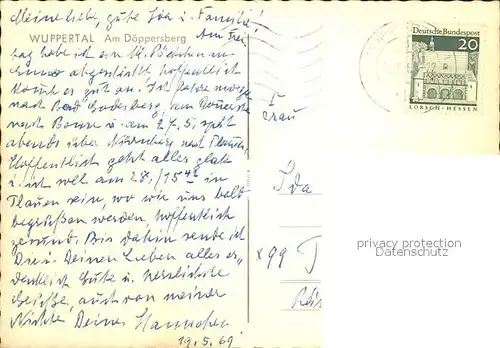 Meine liebe, gute Ida u. Familie!
WUPPERTAL Am Döppersberg
Am Frei
tag habe ich ein Päckchen an
immer abgeschickt hoffentlich
kommt es gut an. Ich fahre morgen
nach Bad Godesberg, am Donnerstag
nach Bonn u. am 27.5. spät
abends über Nürnberg nach Plauen.
Hoffentlich geht alles glatt
u. ich soll am 28./15 in
Plauen sein, wo wir uns bald
begrüßen werden, hoffentlich
gesund. Bis dahin sende ich
Dir u. Deinen Lieben alles
Gute u. herzlichste
Grüße, auch von meiner
Nichte Deine Hannchen
19.5.69
Deutsche Bundespost
20
LORSCH · HESSEN
Frau
Ida
x 99
privacy protection
Datenschutz